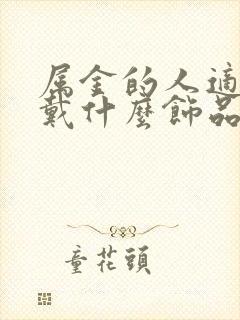 属金的人適
戴什麼飾品
童花頭